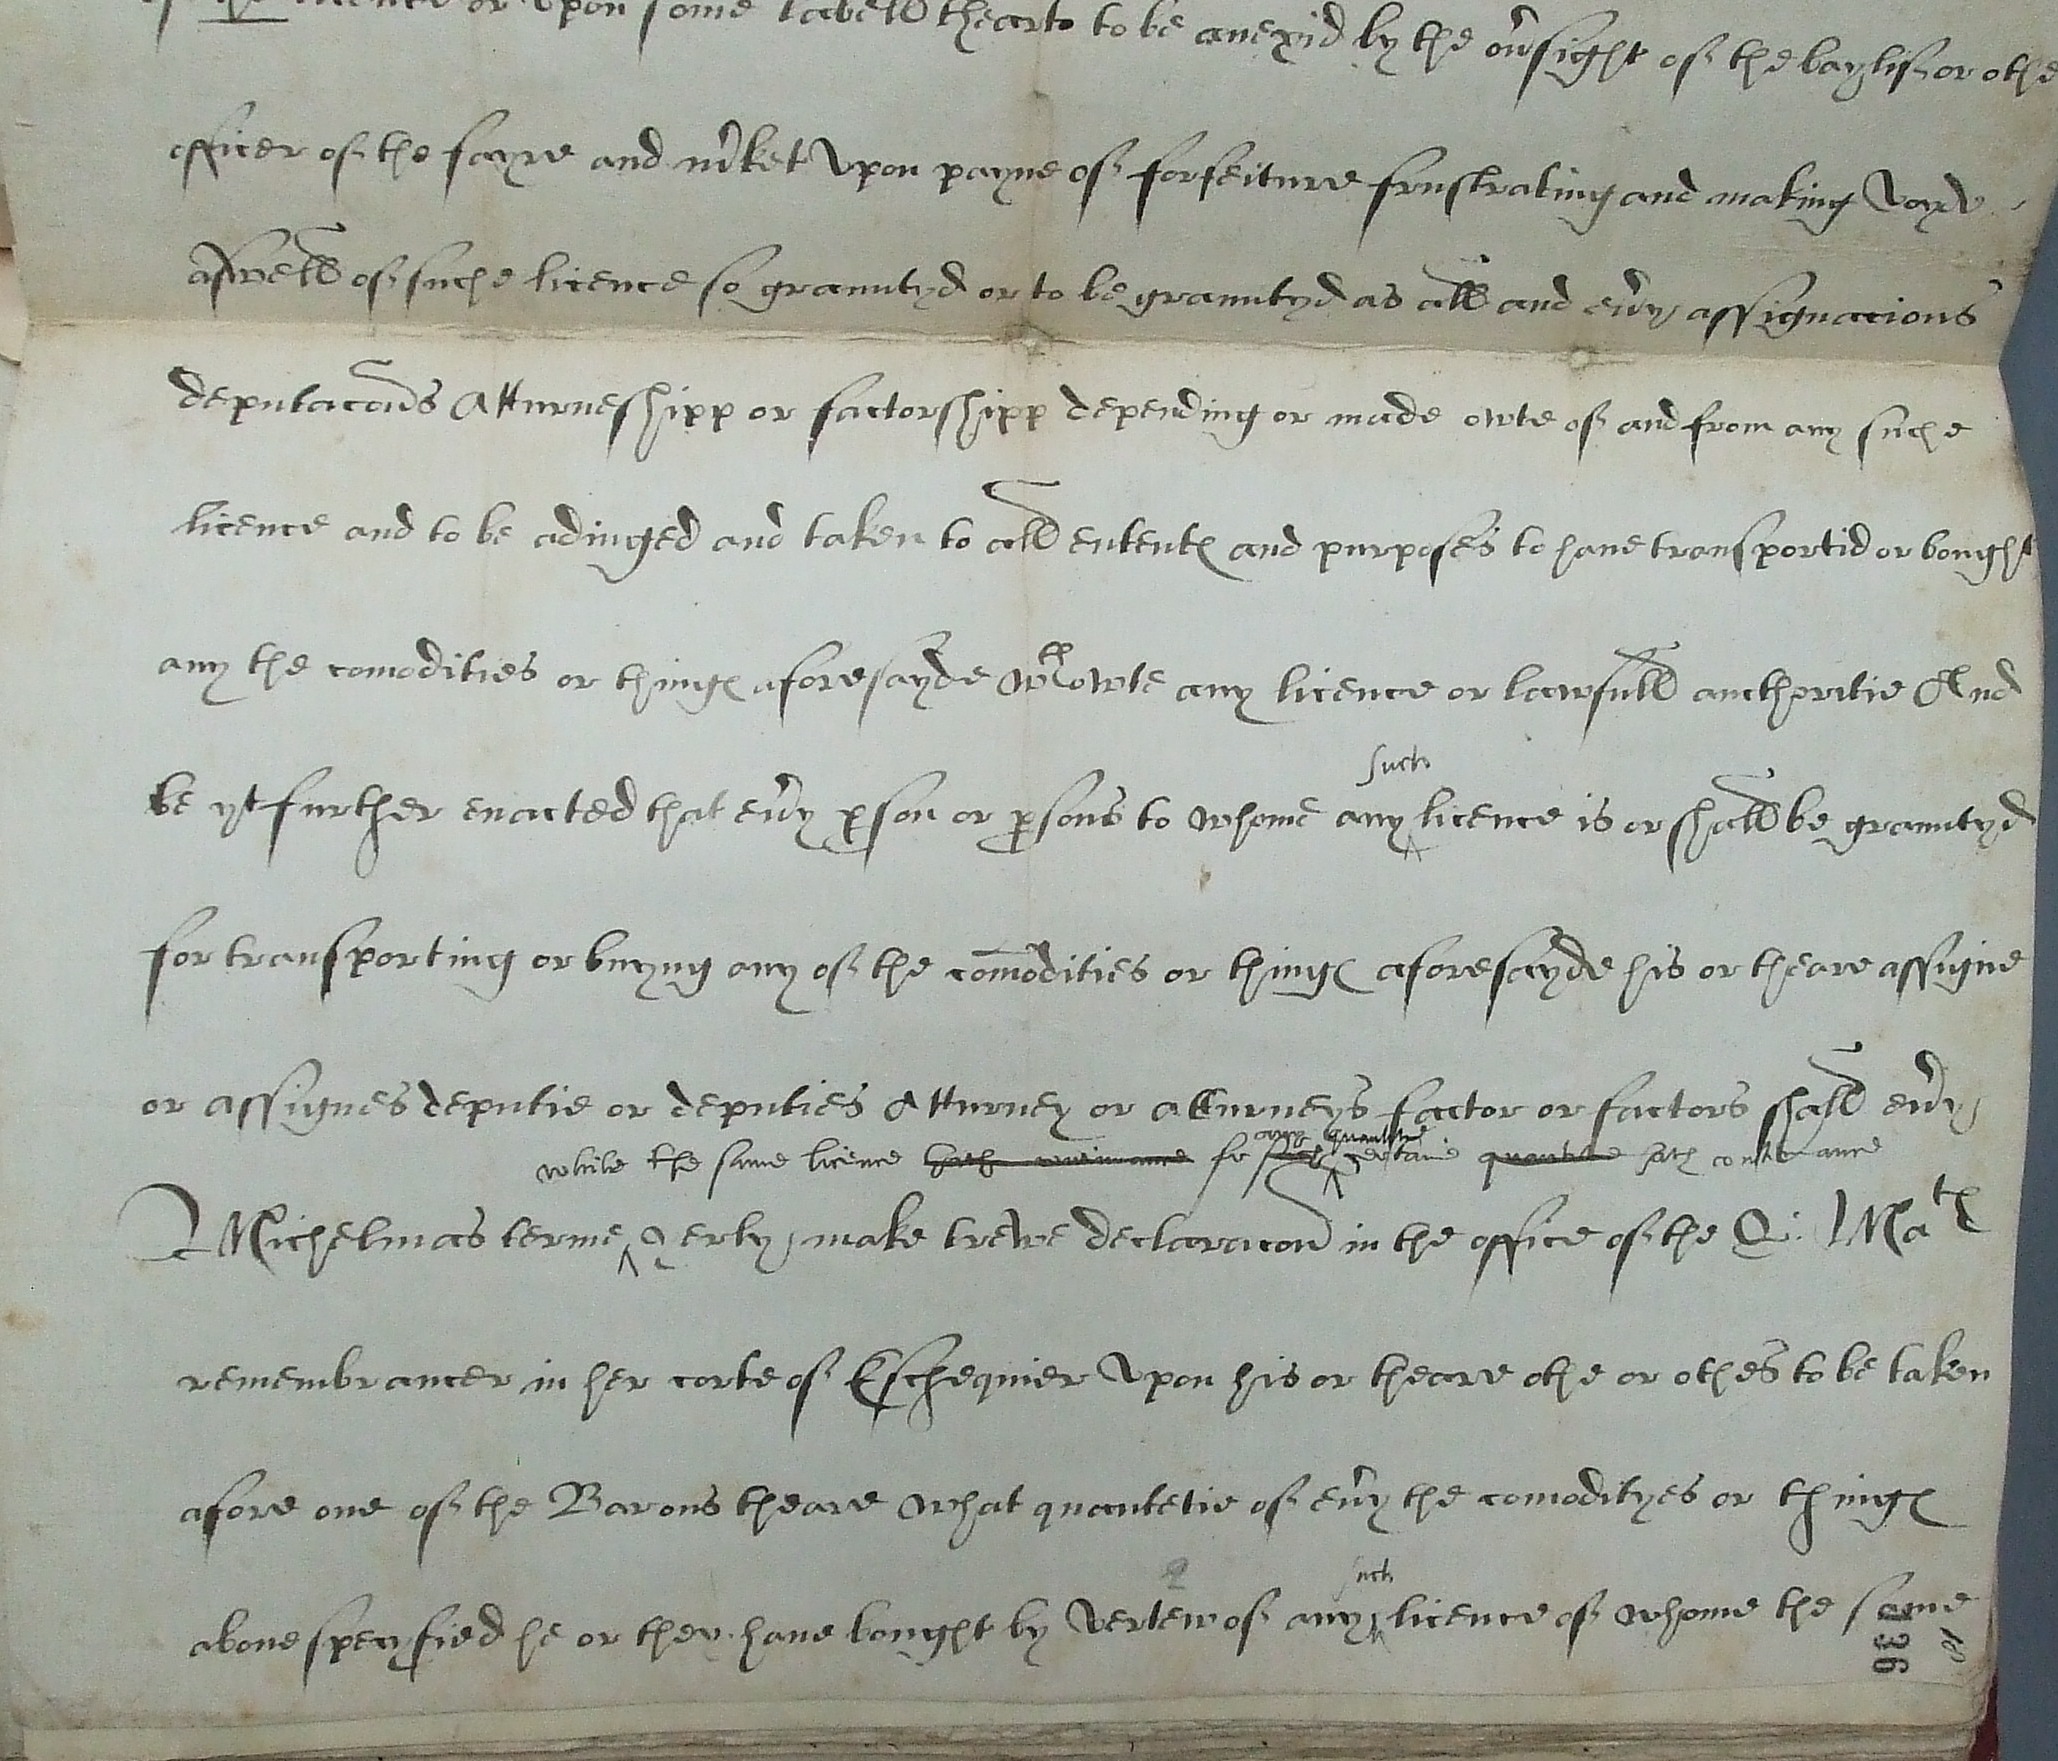 or upon some labell thearto to be anexid by the ov'sight of the baylif or othe
officer of the fayre and m'ket Upon payne of forfeiture frustrating and making Voyde
aswell of suche licence so grauntyd or to be grauntyd as all and ev'y assignacions
deputacons Atturneshipp or factorshipp depending or made owte of and from any suche
licence and to be adiuged and taken to all ententes and purposes to haue transportid or bought
any the comodities or thinges aforesayde wth owte any licence or lawfull aucthoritie And
such
be yt further enacted that ev'y pson or psons to whome any ^ licence is or shall be grauntyd
for transporting or buyng any of the comodities or thinges aforesayde his or theare assigne
or assignes deputie or deputies Atturney or atturneys factor or factors shall ev'y
any quantitie
while the same licence hath contynuance for such ^ certaine quantitie hath contynuance
Michelmas terme ^ yerly make trewe declaracon in the office of the Q. Mates
remembrancer in her corte of Eschequier Upon his or theare othe or othes to be taken
afore one of the Barons theare what quantetie of ev'y the comodityes or thinges
such
aboue specyfied he or they haue bought by Vertew of any ^ licence of whome the same
936